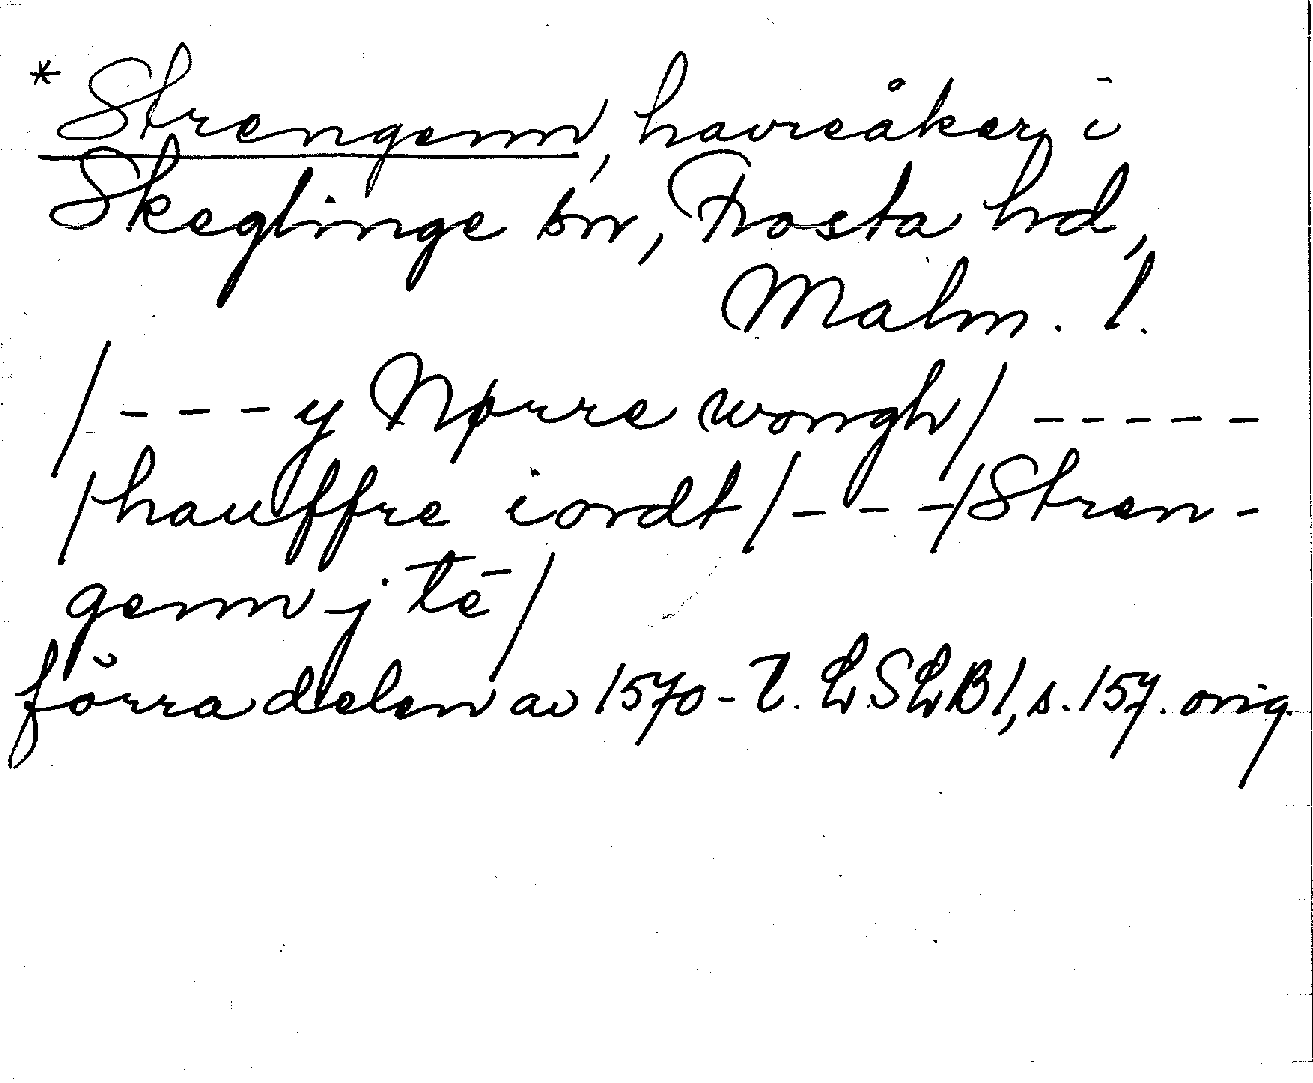 *Strengenn, havreåker i
Skeglinge sn, Frosta hd,
Malm. l.
/---y Nørre wongh/-----
/hauffre iordt/---/Stren-
genn j tē/
förra delen av 1570-t. LSLB1, s. 157. orig.